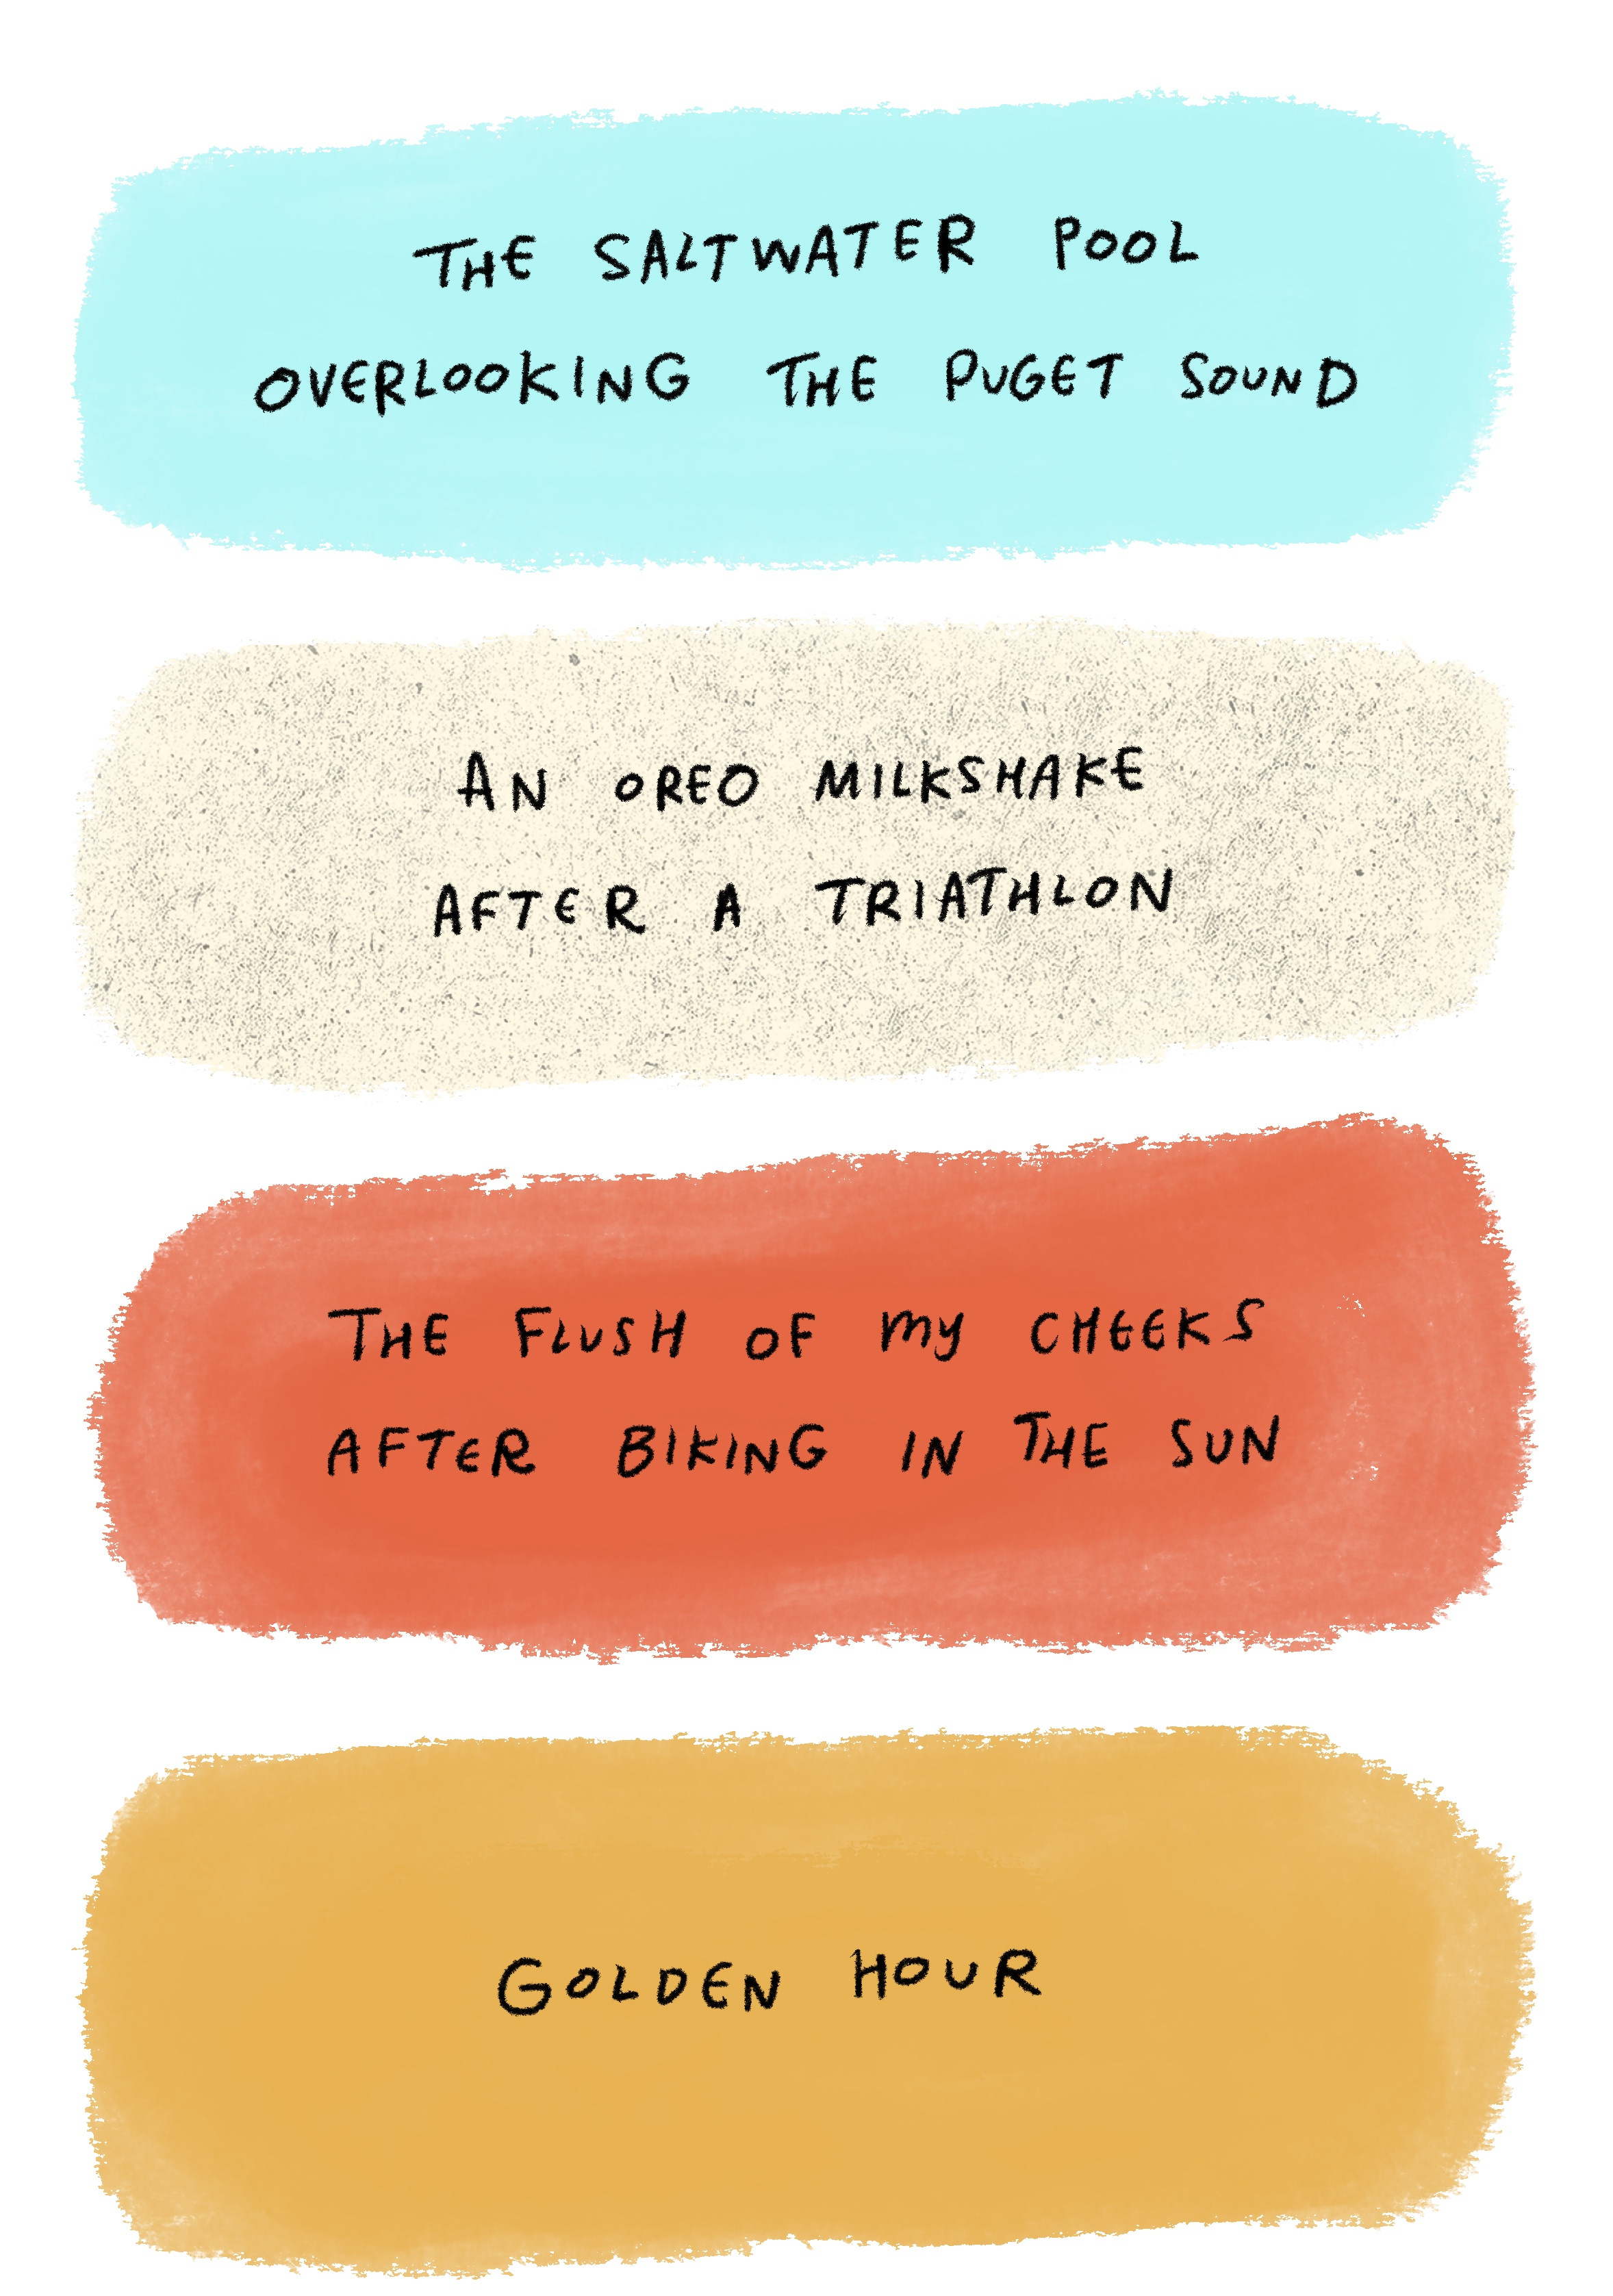 THE SALTWATER POOL
OVERLOOKING THE PUGET SOUND
AN OREO MILKSHAKE
AFTER A TRIATHLON
THE FLUSH OF MY CHEEKS
AFTER BIKING IN THE SUN
GOLDEN HOUR